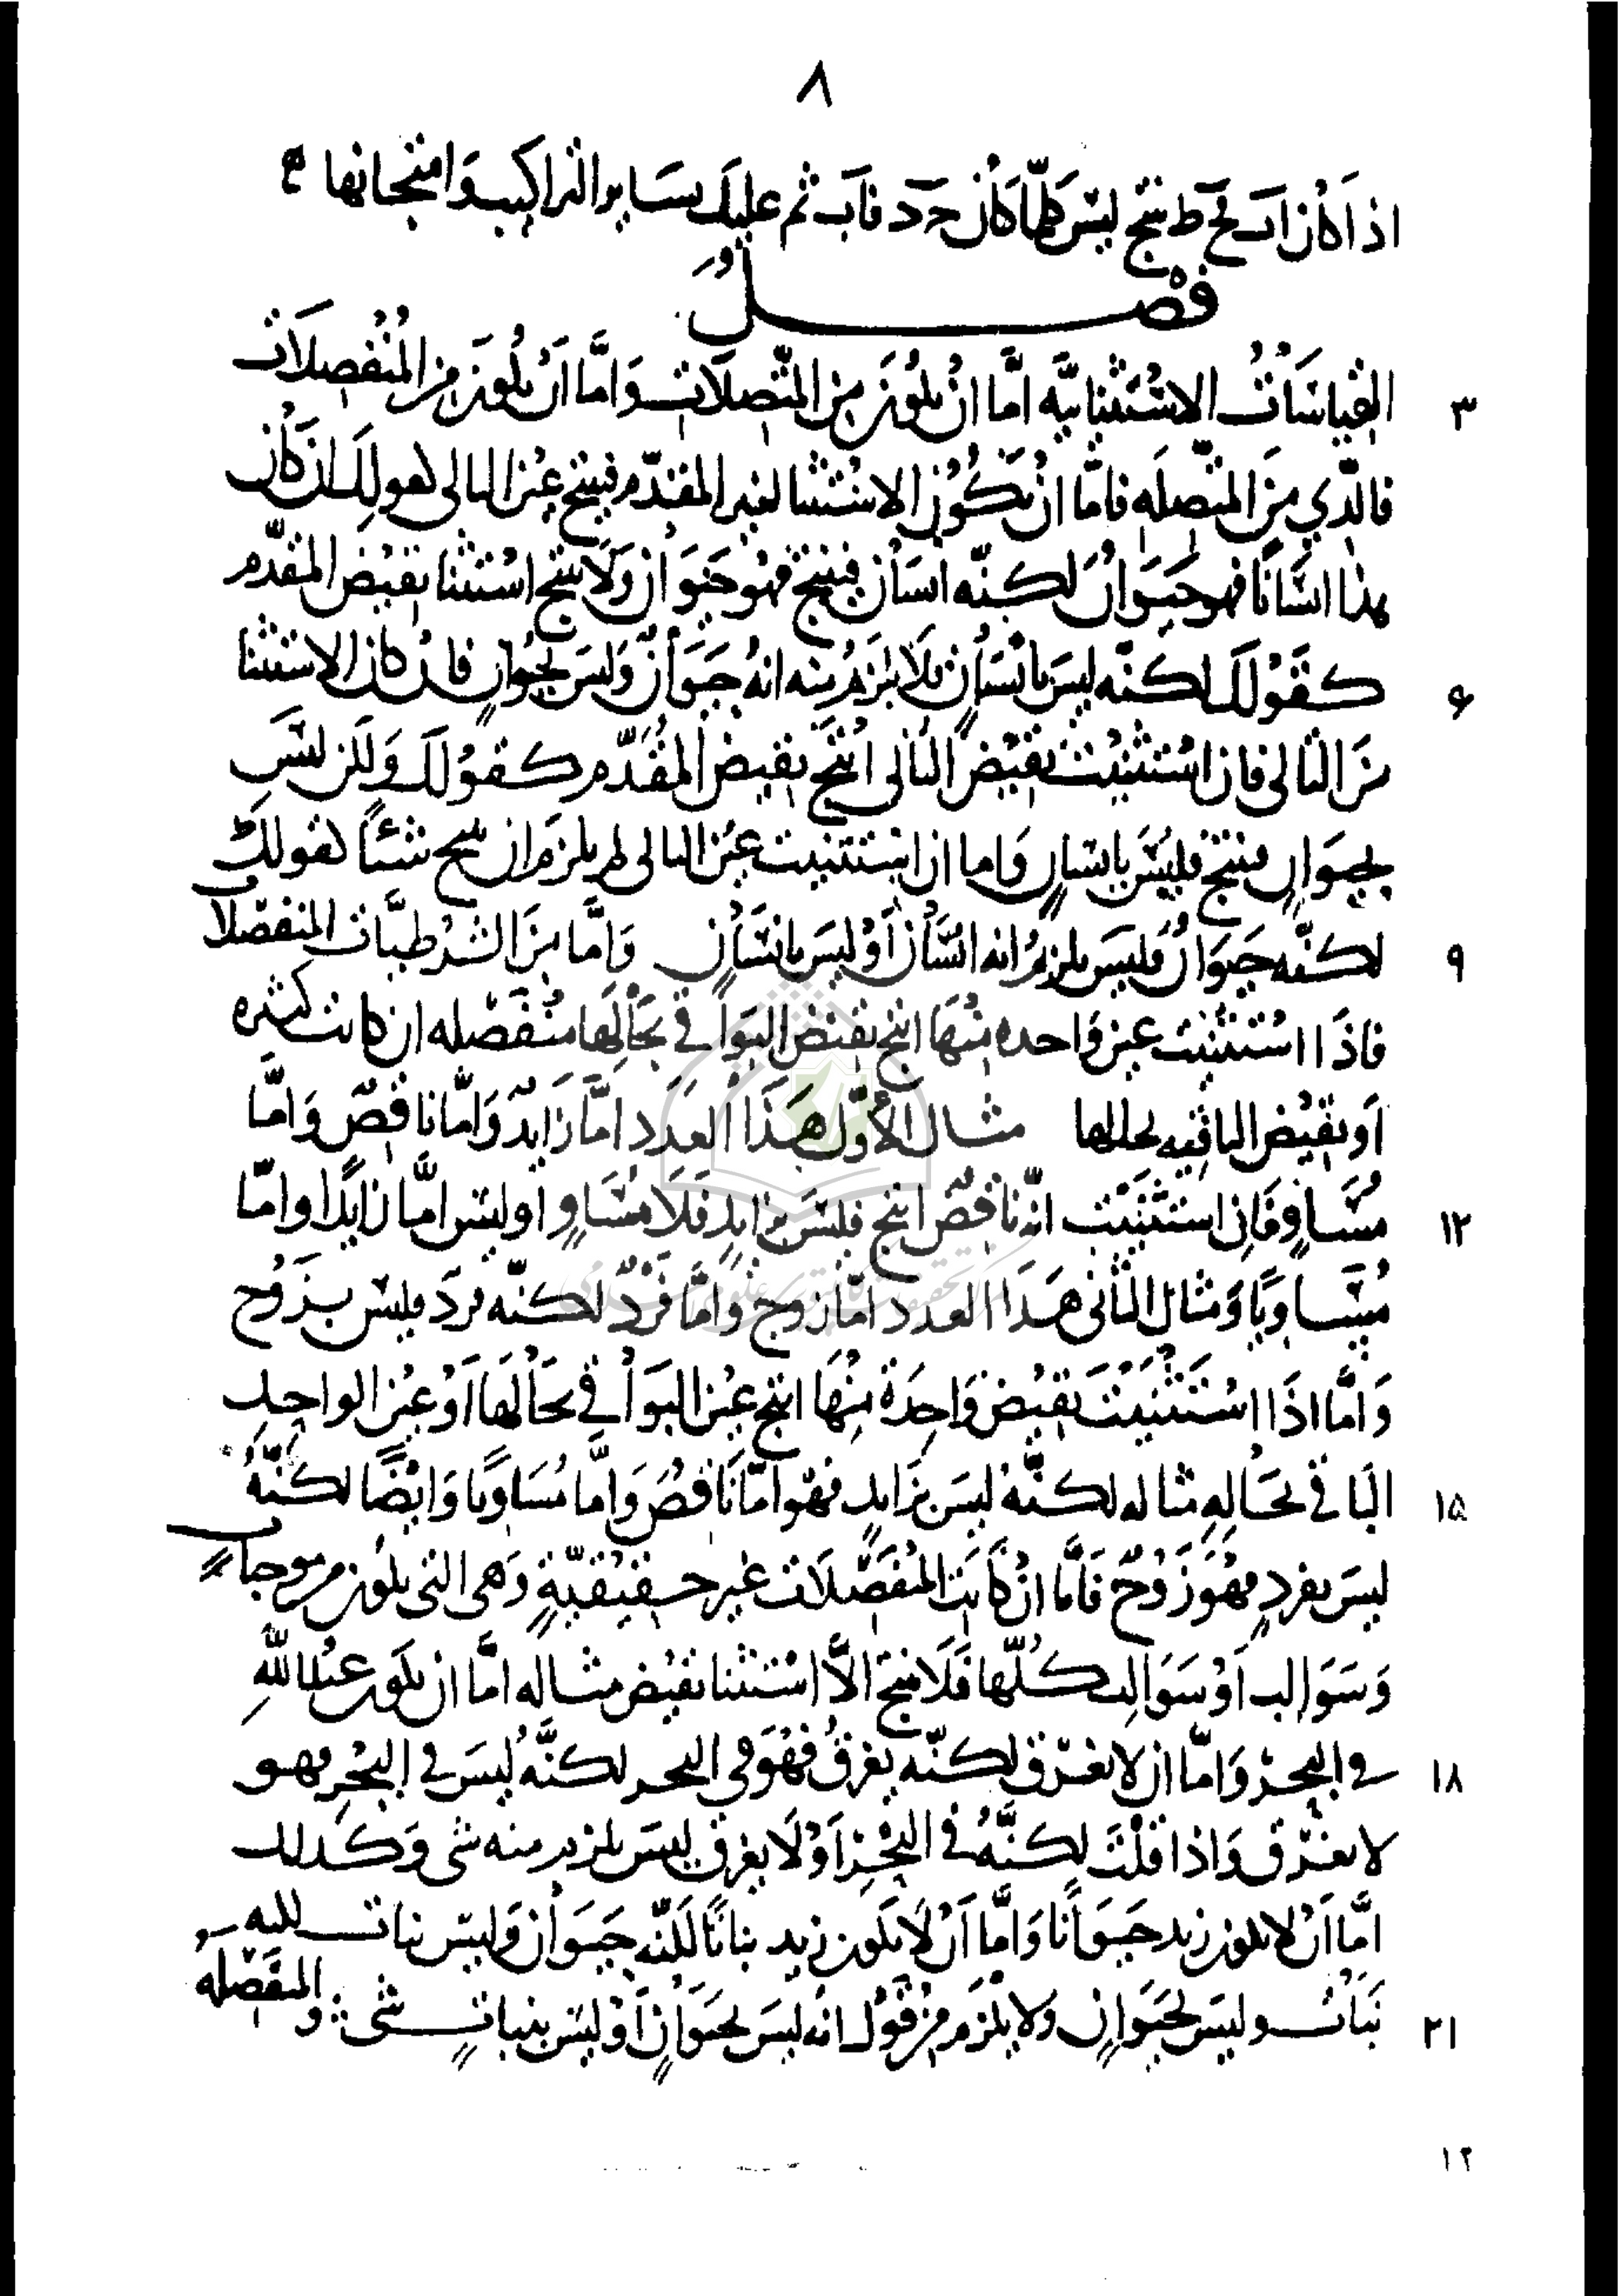 ٨
اذا كان اب فج ط ينتج ليس كلما كان ج د فاب ثم عليك بساير التراكيب وامتحانها
فصل
٣ القياسات الاستثنائيه امّا ان يكون من المتّصلات وامّا ان يكون من المنفصلات
فالّذي من المتّصله فامّا ان يكون الاستثنا لعين المقدّم فينتج عين التالى كقولك ان كان
هذا انسانا فهو حيوان لكنّه انسان فينتج فهو حيوان ولا ينتج استثنا نقيض المقدّم
۶ كقولك لكنّه ليس بانسان فلا يلزم منه انه حيوان وليس بحيوان فان كان الاستثنا
من التالى فان استثنيت نقيض التالى انتج نقيض المقدّم كقولك ولكن ليس
بحيوان فينتج فليس بانسان واما ان استثنيت عين التالى لم يلزم ان ينتج شيئا كقولك
٩ لكنّه حيوان فليس يلزم انه انسان او ليس بانسان وامّا من الشرطيّات المنفصلات
فاذا استثنيت عين واحده منها انتج نقيض البواقي بحالها منفصله ان كانت كثيره
او نقيض الباقيه بحالها مثال الأوّل هذا العدد امّا زايد وامّا ناقص وامّا
١٢ مساو فان استثنيت انّه ناقص انتج فليس بزايد فلا مساو او ليس امّا زايدا وامّا
مساويا ومثال الثانى هذا العدد امّا زوج وامّا فرد لكنّه فرد فليس بزوج
وامّا اذا استثنيت نقيض واحدة منها انتج عين البواقي بحالها او عين الواحد
١۵ الباقي بحاله مثاله لكنّه ليس بزايد فهو امّا ناقص وامّا مساويا وايضا لكنّه
ليس بفرد فهو زوج فامّا ان كانت المنفصلات غير حقيقيّة وهى التى يكون من موجبات
وسوالب او سوالب كلّها فلا ينتج الّا استثنا نقيض مثاله امّا ان يكون عبدالله
١٨ في البحر وامّا ان لا يغرق لكنّه يغرق فهو في البحر لكنّه ليس في البحر فهو
لا يغرق واذا قلت لكنّه في البحر او لا يغرق ليس يلزم منه شى وكذلك
امّا ان لا يكون زيد حيوانا وامّا ان لا يكون زيد نباتا لكنّه حيوان وليس نبات لكنه
٢١ نبات وليس بحيوان ولا يلزم من قول انه ليس بحيوان او ليس بنبات شى والمنفصله
١٢